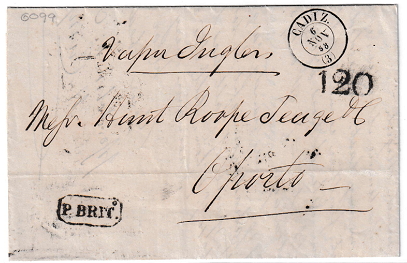 6099
CADIZ.
6
NOV
58
(3)
Vapor Ingles
120
Messrs Hunt Roope Teage & C
Oporto
P. BRIT.